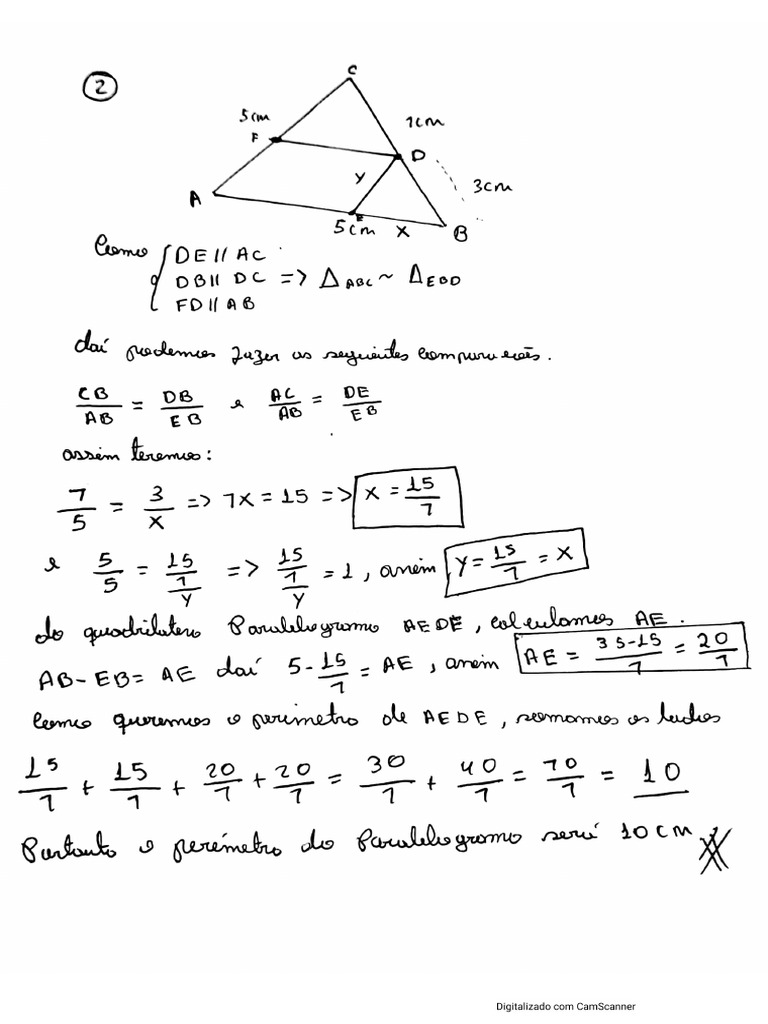 2
C
5cm
F
7cm
D
Y
3cm
A
E
5cm X
B
Como { DE // AC
DB // DC => Δ ABC ~ Δ EBD
FD // AB
daí podemos fazer as seguintes comparações.
CB/AB = DB/EB e AC/AB = DE/EB
assim teremos:
7/5 = 3/X => 7X = 15 => X = 15/7
e 5/5 = 15/7/Y => 15/7/Y = 1, assim Y = 15/7 = X
do quadrilátero Paralelogramo AEDE, calculamos AE.
AB - EB = AE daí 5 - 15/7 = AE, assim AE = 35-15/7 = 20/7
Como queremos o perímetro de AEDE, somamos os lados
15/7 + 15/7 + 20/7 + 20/7 = 30/7 + 40/7 = 70/7 = 10
Portanto o perímetro do Paralelogramo será 10cm
Digitalizado com CamScanner